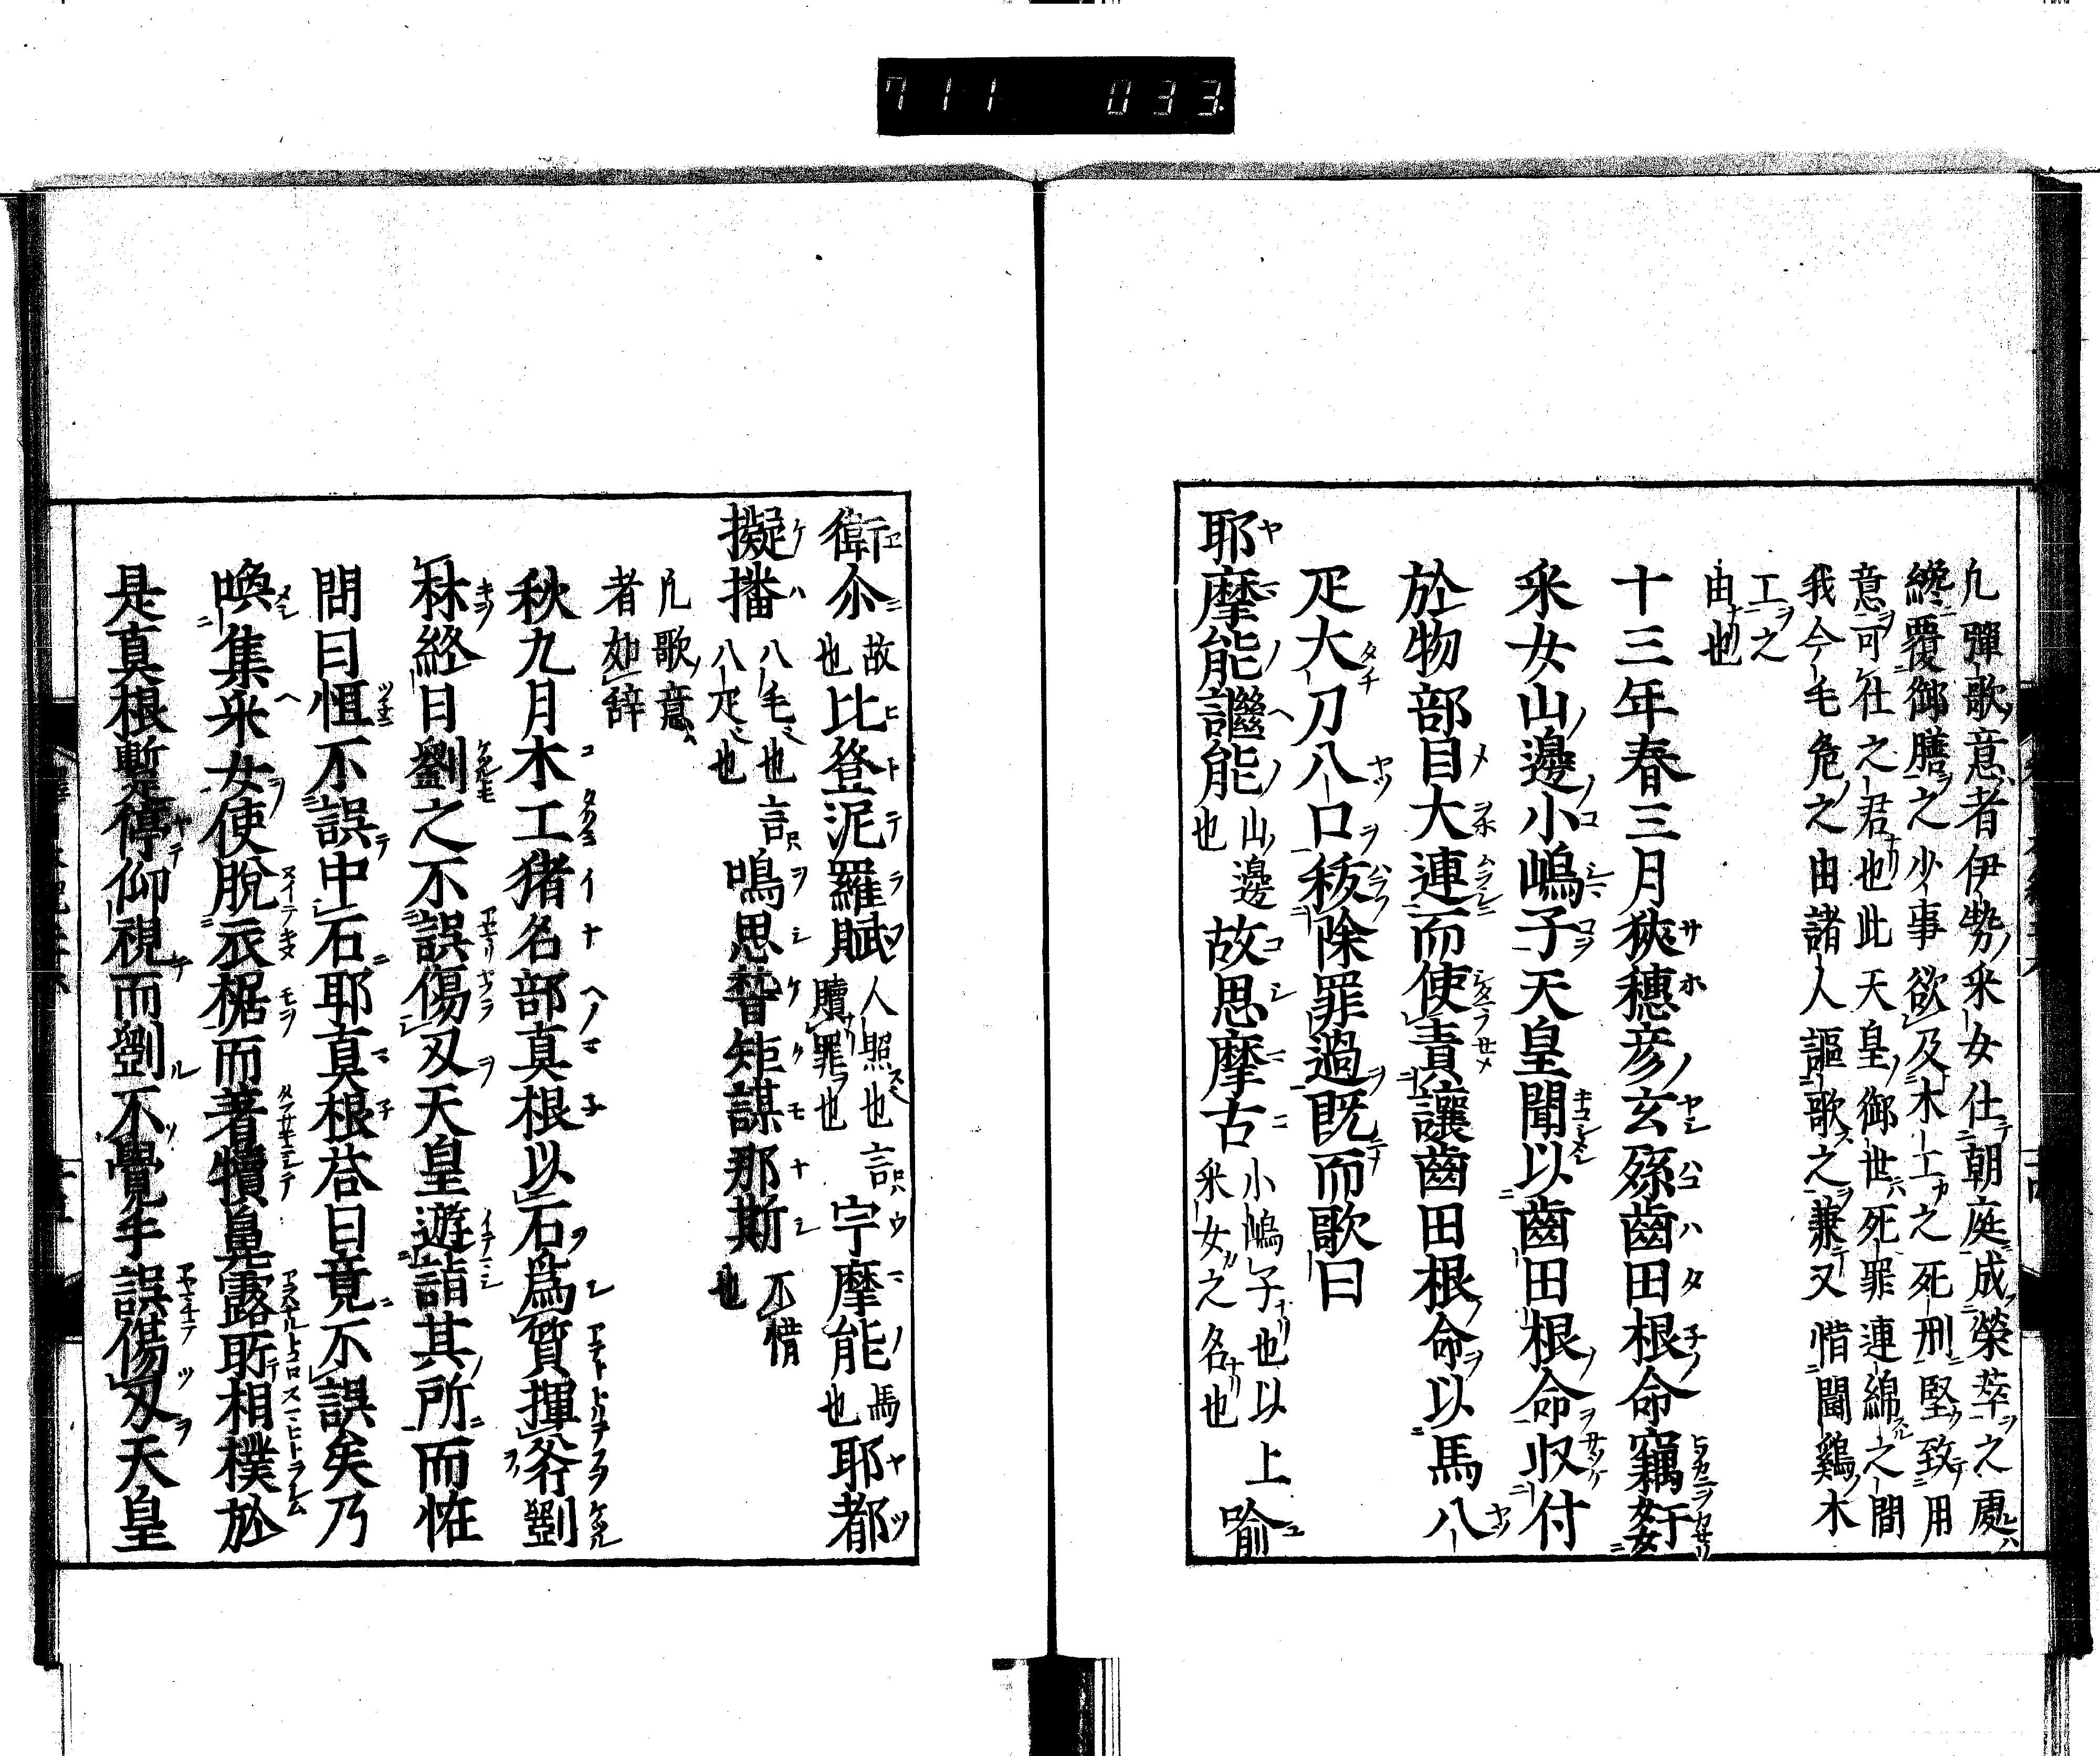 凡彈歌意者伊勢釆女仕朝庭成榮莘之處
纔覆御膳之少事欲及木工之死刑堅致用
意可仕之君也此天皇御世死罪連綿之間
我今毛危之由諸人謳歌之兼又惜閪鷄木
工之
由也
十三年春三月狹穗彦玄孫齒田根命竊姧
釆女山邊小嶋子天皇聞以齒田根命収付
於物部目大連而使責讓齒田根命以馬八
疋大刀八口秡除罪過既而歌曰
耶摩能謎能山邊也故思摩古小嶋子也以釆女之名也上喩
衛尓故也比登泥羅賦人照也言贖罪也宇摩能馬也耶都
擬播八毛也八疋也言鳴思稽矩謀那斯不惜也
凡歌意
者如辞
秋九月木工猪名部真根以石爲質揮斧劉
秝終日劉之不誤傷刄天皇遊詣其所而恠
問曰恒不誤中石耶真根荅曰竟不誤矣乃
喚集釆女使脫衣裾而著犢鼻露所相撲於
是真根暫停仰視而劉不覺手誤傷刄天皇
711 033